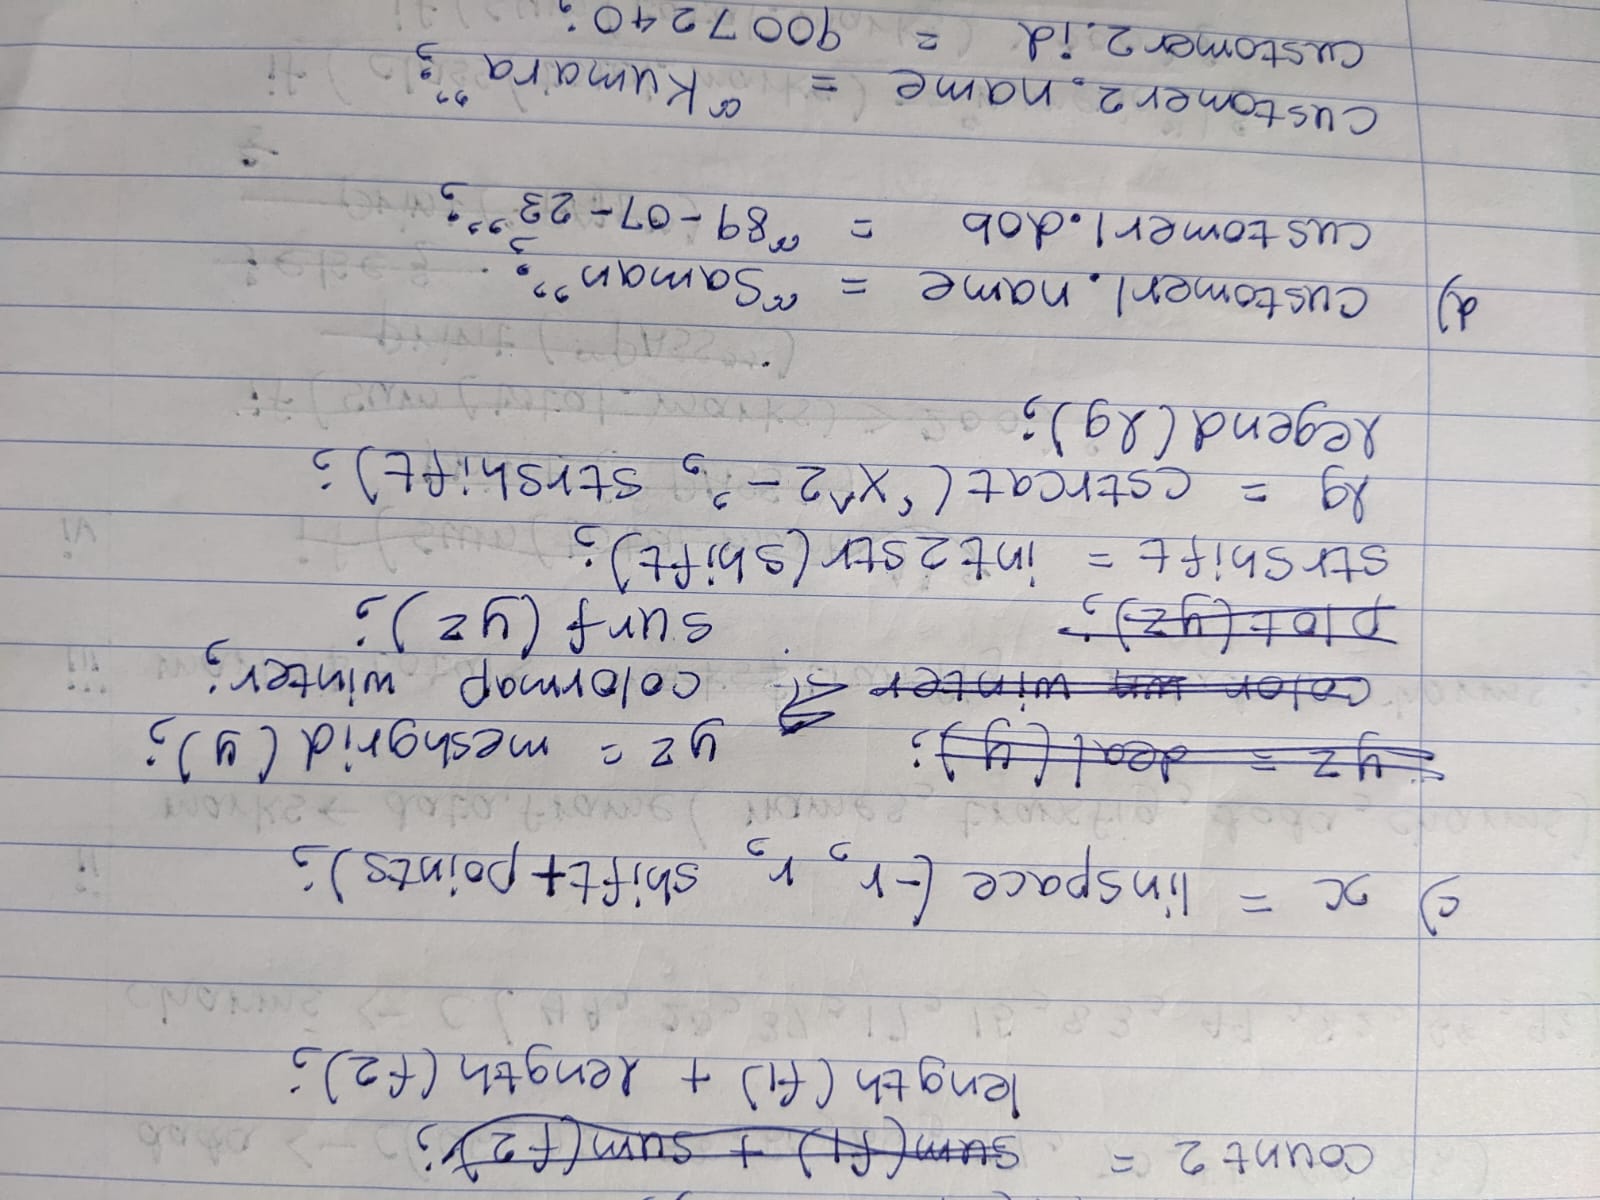 count2 = sum(f1) + sum(f2);
length(f1) + length(f2);
c) x = linspace(-r, r, shift+points);
yz = deal(y); yz = meshgrid(y);
color winter colormap winter;
plot(yz); surf(yz);
strshift = int2str(shift);
lg = cstrcat('x^2-', strshift);
legend(lg);
d) customer1.name = "Saman";
customer1.dob = "89-07-23";
customer2.name = "Kumara";
customer2.id = 9007240;